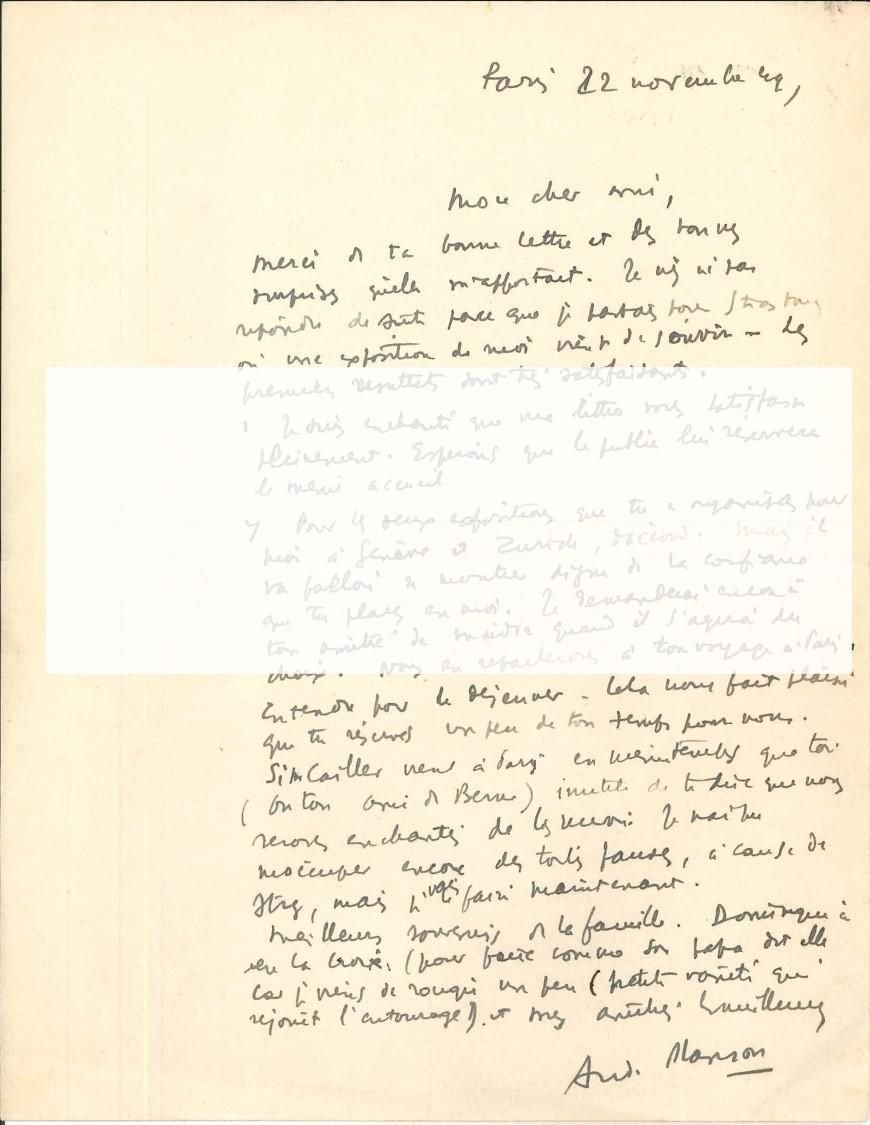 Paris 22 novembre 49,
Mon cher ami,
Merci de ta bonne lettre et des bonnes
surprises qu'elle m'apportait. Je n'ai pas
répondre de suite parce que je partais pour Strasbourg
où une exposition de moi vient de s'ouvrir - Les
premiers résultats sont très satisfaisants.
Je suis enchanté que ma litho vous satisfasse
pleinement. Espérons que le public lui réservera
le même accueil
Pour les deux expositions que tu organises pour
moi à Genève et Zurich, d'accord. Mais il
va falloir se montrer digne de la confiance
que tu places en moi. Je demanderai encore à
ton amitié de quand il s'agira du
choix. Nous en reparlerons à ton voyage à Paris.
Entendu pour le déjeuner - Cela nous fait plaisir
que tu réserves un peu de ton temps pour nous.
Si Cailler vient à Paris en même temps que toi
(ou ton ami de Berne) inutile de te dire que nous
serons enchantés de les recevoir. Je n'ai pu
m'occuper encore des toiles fausses, à cause de
Strg, mais je vais le faire maintenant.
Meilleurs souvenirs de la famille. Dominique a
eu la croix, (pour faire comme son papa dit elle
car je viens de rougir un peu (petite vanité qui
réjouit l'entourage!). et mes amitiés les meilleures